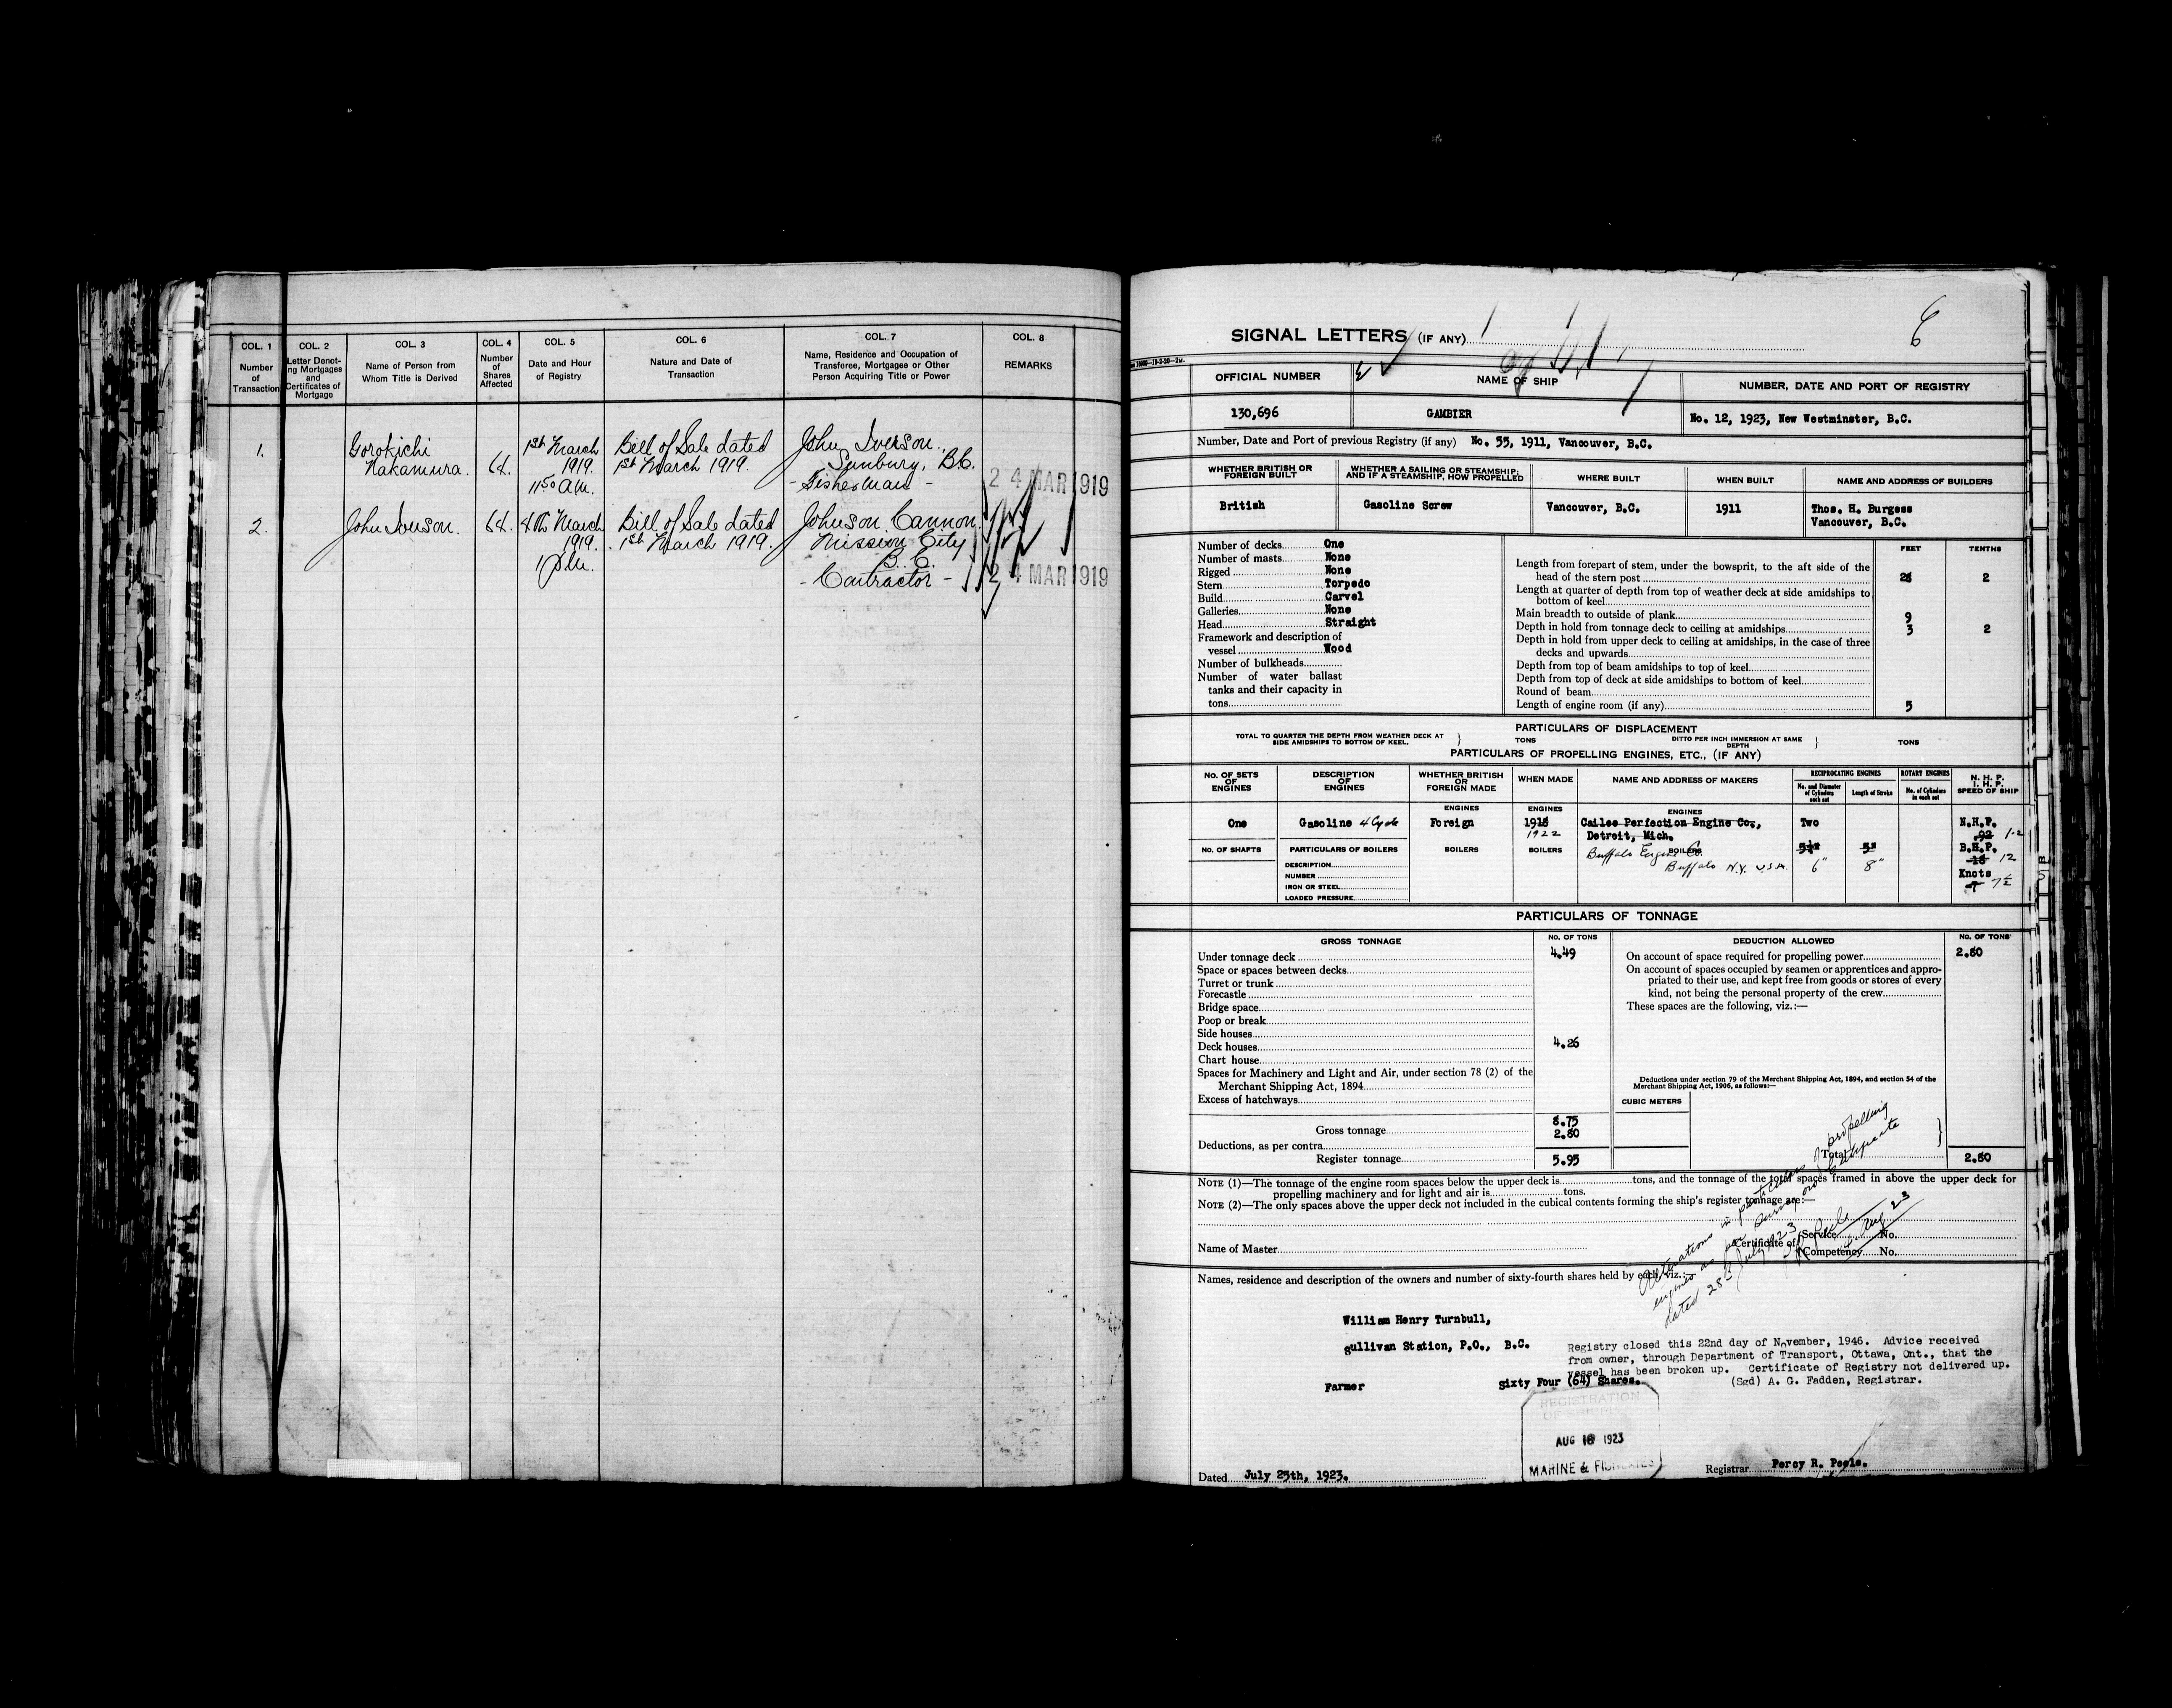 COL. 1
Number
of
Transaction
COL. 2
Letter Denot-
ing Mortgages
and
Certificates of
Mortgage
COL. 3
Name of Person from
Whom Title is Derived
COL. 4
Number
of
Shares
Affected
COL. 5
Date and Hour
of Registry
COL. 6
Nature and Date of
Transaction
COL. 7
Name, Residence and Occupation of
Transferee, Mortgagee or Other
Person Acquiring Title or Power
COL. 8
REMARKS
1.
Gorokichi
Nakamura.
64.
1st March
1919.
11.50 a.m.
Bill of Sale dated
1st March 1919.
John Iverson.
Sunbury, B.C.
- Fisherman -
24 MAR 1919
2.
John Iverson.
64.
4th March
1919.
1 p.m.
Bill of Sale dated
1st March 1919.
Johnson Cannon
Mission City
B.C.
- Contractor -
24 MAR 1919
SIGNAL LETTERS (IF ANY)
6
OFFICIAL NUMBER
NAME OF SHIP
NUMBER, DATE AND PORT OF REGISTRY
130,696
GAMBIER
No. 12, 1923, New Westminster, B.C.
Number, Date and Port of previous Registry (if any) No. 55, 1911, Vancouver, B.C.
WHETHER BRITISH OR
FOREIGN BUILT
WHETHER A SAILING OR STEAMSHIP;
AND IF A STEAMSHIP, HOW PROPELLED
WHERE BUILT
WHEN BUILT
NAME AND ADDRESS OF BUILDERS
British
Gasoline Screw
Vancouver, B.C.
1911
Thos. H. Burgess
Vancouver, B.C.
Number of decks One
Number of masts None
Rigged None
Stern Torpedo
Build Carvel
Galleries None
Head Straight
Framework and description of
vessel Wood
Number of bulkheads
Number of water ballast
tanks and their capacity in
tons
FEET
TENTHS
Length from forepart of stem, under the bowsprit, to the aft side of the
head of the stern post 2
Length at quarter of depth from top of weather deck at side amidships to
bottom of keel
Main breadth to outside of plank 9
Depth in hold from tonnage deck to ceiling at amidships 3 2
Depth in hold from upper deck to ceiling at amidships, in the case of three
decks and upwards
Depth from top of beam amidships to top of keel
Depth from top of deck at side amidships to bottom of keel
Round of beam
Length of engine room (if any) 5
PARTICULARS OF DISPLACEMENT
TOTAL TO QUARTER THE DEPTH FROM WEATHER DECK AT
SIDE AMIDSHIPS TO BOTTOM OF KEEL.
TONS
DITTO PER INCH IMMERSION AT SAME
DEPTH
TONS
PARTICULARS OF PROPELLING ENGINES, ETC., (IF ANY)
NO. OF SETS
OF
ENGINES
DESCRIPTION
OF
ENGINES
WHETHER BRITISH
OR
FOREIGN MADE
WHEN MADE
NAME AND ADDRESS OF MAKERS
RECIPROCATING ENGINES
No. and Diameter
of Cylinders
each set
Length of Stroke
ROTARY ENGINES
No. of Cylinders
in each set
N. H. P.
I. H. P.
SPEED OF SHIP
ENGINES
ENGINES
ENGINES
One
Gasoline 4 Cycle
Foreign
1922
Cailes Perfection Engine Co.,
Detroit, Mich.
Two
N.H.P.
.92 1.2
NO. OF SHAFTS
PARTICULARS OF BOILERS
BOILERS
BOILERS
BOILERS
Buffalo Engine Co.
Buffalo N.Y. U.S.A.
5½"
5"
6"
8"
B.H.P.
12
Knots
7½
DESCRIPTION
NUMBER
IRON OR STEEL
LOADED PRESSURE
PARTICULARS OF TONNAGE
GROSS TONNAGE
NO. OF TONS
DEDUCTION ALLOWED
NO. OF TONS
Under tonnage deck 4.49
Space or spaces between decks
Turret or trunk
Forecastle
Bridge space
Poop or break
Side houses
Deck houses 4.26
Chart house
Spaces for Machinery and Light and Air, under section 78 (2) of the
Merchant Shipping Act, 1894
Excess of hatchways
Gross tonnage 8.75
Deductions, as per contra 2.80
Register tonnage 5.95
On account of space required for propelling power 2.80
On account of spaces occupied by seamen or apprentices and appro-
priated to their use, and kept free from goods or stores of every
kind, not being the personal property of the crew
These spaces are the following, viz.:—
Deductions under section 79 of the Merchant Shipping Act, 1894, and section 54 of the
Merchant Shipping Act, 1906, as follows:—
CUBIC METERS
Total 2.80
NOTE (1)—The tonnage of the engine room spaces below the upper deck is tons, and the tonnage of the total spaces framed in above the upper deck for
propelling machinery and for light and air is tons.
NOTE (2)—The only spaces above the upper deck not included in the cubical contents forming the ship's register tonnage are:—
Name of Master
Certificate of Service No.
Competency No.
Alterations in particulars of propelling
engines as per Surveyors Certificate
dated 28th July 1923
Aug 23
Names, residence and description of the owners and number of sixty-fourth shares held by each, viz.:
William Henry Turnbull,
Sullivan Station, P.O., B.C.
Farmer
Sixty Four (64) Shares.
Registry closed this 22nd day of November, 1946. Advice received
from owner, through Department of Transport, Ottawa, Ont., that the
vessel has been broken up. Certificate of Registry not delivered up.
(Sgd) A. G. Fadden, Registrar.
REGISTRATION
OF SHIPPING
AUG 16 1923
MARINE & FISHERIES
Dated July 25th, 1923.
Registrar Percy R. Peele.